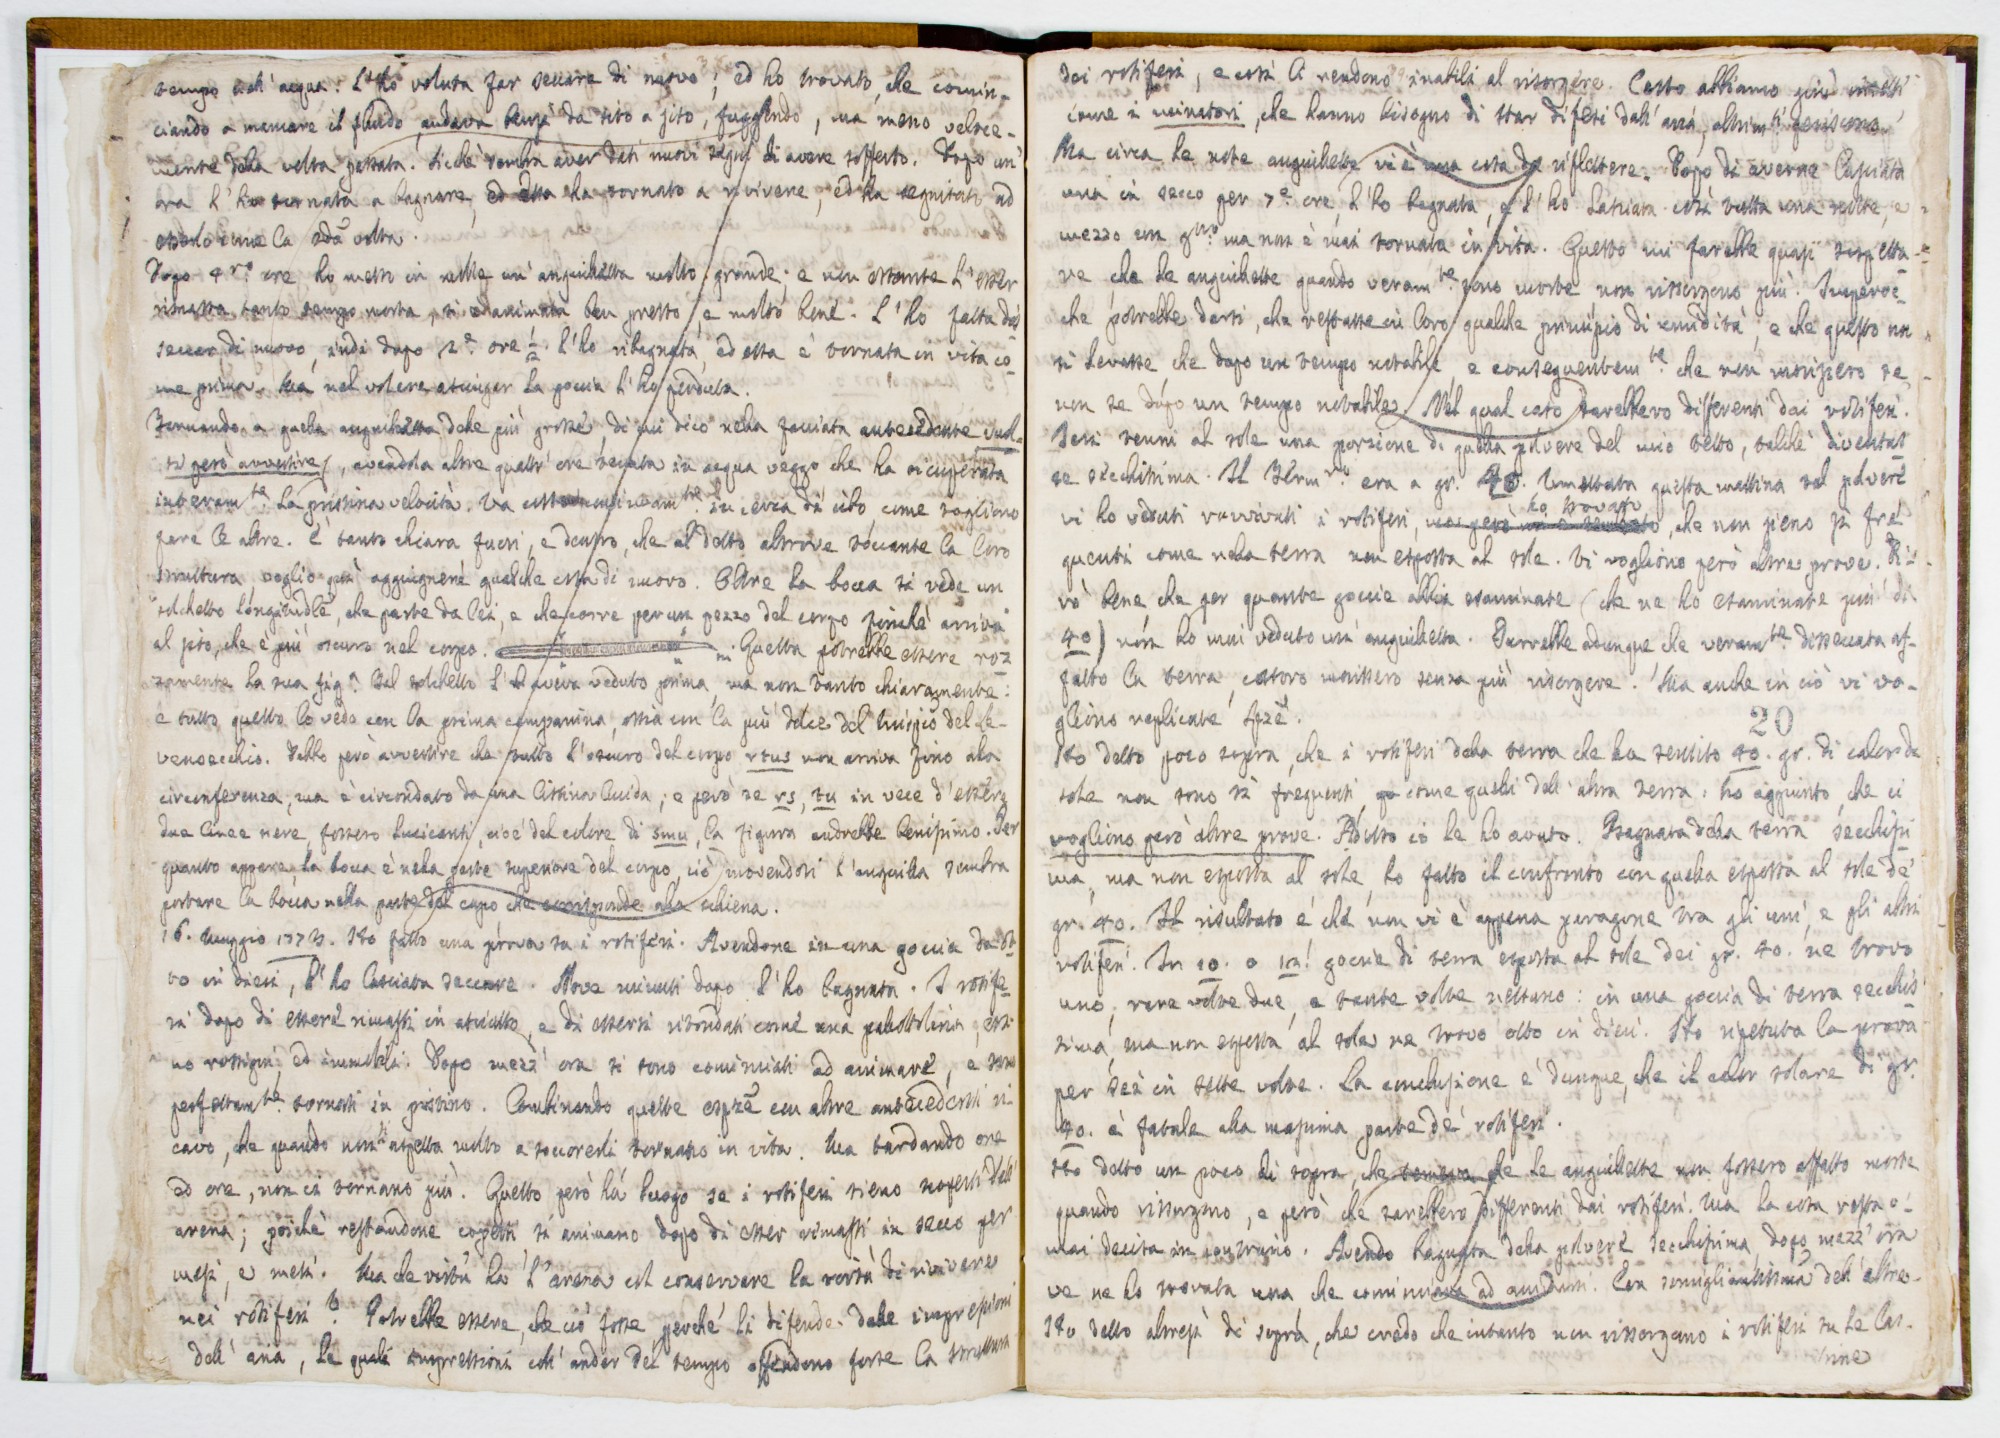 tempo nell' acqua. L'ho voluta far seccare di nuovo; ed ho trovato, che comin-
ciando a mancare il fluido, andava bensì da sito a sito, fuggendo, ma meno veloce-
mente della volta passata. Sicchè sembra aver dati nuovi segni di avere sofferto. Dopo un'
ora l' ho tornata a bagnare, ed essa ha tornato a rivivere, ed ha seguitato ad
esserlo come la 2da volta.
Dopo 4ro ore ho messo in molle un' anguilletta molto grande; e non ostante l' esser
rimasta tanto tempo morta, si è animata ben presto, e molto bene. L' ho fatta di
seccar di nuovo, indi dopo 2e ore 1/2 l' ho ribagnata, ed essa è tornata in vita co-
me prima. Ma nel volere asciugar la goccia l' ho perduta.
Tornando a quella anguilletta delle più grosse, di cui dico nella facciata antecedente vuol-
si però avvertire, avendola altre quattr' ore tenuta in acqua veggo che ha ricuperata
interamte la pristina velocità. Va in cerca di cibo come sogliono
fare le altre. È tanto chiara fuori, e dentro, che al detto altrove toccante la loro
struttura voglio qui aggiugnere qualche cosa di nuovo. Oltre la bocca si vede un
solchetto longitudle, che parte da lei, e che corre per un pezzo del corpo finchè arriva
al sito, che è più oscuro nel corpo. Questa potrebbe essere roz
zamente la sua figa. Il solchetto l' aveva veduto prima, ma non tanto chiaramente:
e tutto questo lo vedo con la prima campanina, ossia con la più dolce del
venosecchio. Debbo però avvertire che tutto l' oscuro del corpo rtus non arriva fino alla
circonferenza, ma è circondato da una listina lucida; e però se rs, tu in vece d' essere
due linee nere, fossero lucicanti, cioè del colore di smu, la figura andrebbe benissimo. Per
quanto appare, la bocca è nella parte superiore del corpo, cioè movendosi l' anguilla sembra
portare la bocca nella parte del capo che corrisponde alla schiena.
16. Maggio 177 . Ho fatto una prova su i rotiferi. Avendone in una goccia da ot
to in dieci, l' ho lasciata seccare. Nove minuti dopo l' ho bagnata. I rotife
ri dopo di essere rimasti in asciutto, e di essersi ritondati come una pallottolina, e
no rossigni ed immobili. Dopo mezz' ora si sono cominciati ad animare, e sono
perfettamte tornati in pristino. Combinando queste espze con altre antecedenti ri
cavo, che quando non si aspetta molto a soccorerli tornano in vita. Ma tardando ore
ed ore, non ci tornano più. Questo però ha luogo se i rotiferi sieno scoperti dall'
arena; poichè restandone coperti si animano dopo di esser rimasti in secco per
mesi, e mesi. Ma che virtù ha l' arena col conservare la virtù di rivivere
nei rotiferi? Potrebbe essere, che ciò fosse, perchè li difende dalle impressioni
dell' aria, le quali impressioni coll' andar del tempo offendono forse la struttura
dei rotiferi, e così li rendono inabili al risorgere. Certo abbiamo
come i , che hanno bisogno di star difesi dall' aria, altrimti periscono
Ma circa le note anguillette vi è una cosa da riflettere. Dopo di averne lasciata
una in secco per 7e ore, l' ho bagnata, e l' ho lasciata così tutta una notte, e
mezzo un gno: ma non è mai tornata in vita. Questo mi farebbe quasi sospetta
re che le anguillette quando veramte sono morte non risorgono più. Imperoc
che potrebbe darsi, che restasse in loro qualche principio di umidità, e che questo non
si levasse che dopo un tempo notabile e conseguentemte che non morissero se
non se dopo un tempo notabile. Nel qual caso sarebbero differenti dai rotiferi.
Ieri tenni al sole una porzione di quella polvere del mio tetto, talchè diventas
se secchissima. Il Termro era a gr. 40. Umettata questa mattina tal polvere
vi ho veduti ravvivati i rotiferi, ho trovato, che non sieno sì fre
quenti come nella terra non esposta al sole. Vi vogliono però altre prove. Ri
vò bene che per quante goccie abbia esaminate (che ne ho esaminate più di
40) non ho mai veduto un' anguilletta. Parrebbe adunque che veramte disseccata af-
fatto la terra, costoro morissero senza più risorgere. Ma anche in ciò vi vo-
gliono replicate spze.
20
Ho detto poco sopra, che i rotiferi della terra che ha sentito 40. gr. di calor di
sole non sono sì frequenti, come quelli dell' altra terra. Ho aggiunto, che ci
vogliono però altre prove. Adesso io le ho avute. Bagnata della terra secchissi
ma, ma non esposta al sole, ho fatto il confronto con quella esposta al sole de'
gr. 40. Il risultato è che non vi è appena paragone tra gli uni, e gli altri
rotiferi. In 10. o 12! goccie di terra esposta al sole dei gr. 40. ne trovo
uno, rare volte due, e tante volte nessuno: in una goccia di terra secchis
sima, ma non esposta al sole ne trovo otto in dieci. Ho ripetuta la prova
per sei in sette volte. La conclusione è dunque, che il calor solare di gr.
40. è fatale alla massima parte de' rotiferi.
Ho detto un poco di sopra, che temeva che le anguillette non fossero affatto morte
quando risorgono, e però che sarebbero differenti dai rotiferi. Ma la cosa resta o-
mai decisa in contrario. Avendo bagnata della polvere secchissima, dopo mezz' ora
ve ne ho trovata una che cominciava ad animarsi. Era somigliantissima dell' altre.
Ho detto altresì di sopra, che credo che intanto non risorgano i rotiferi su le las-
trine